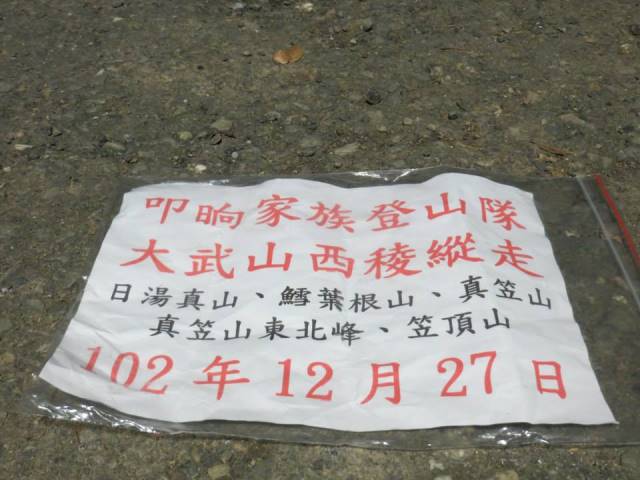 叩晌家族登山隊
大武山西稜縱走
日湯真山、鱈葉根山、真笠山
真笠山東北峰、笠頂山
102年12月27日